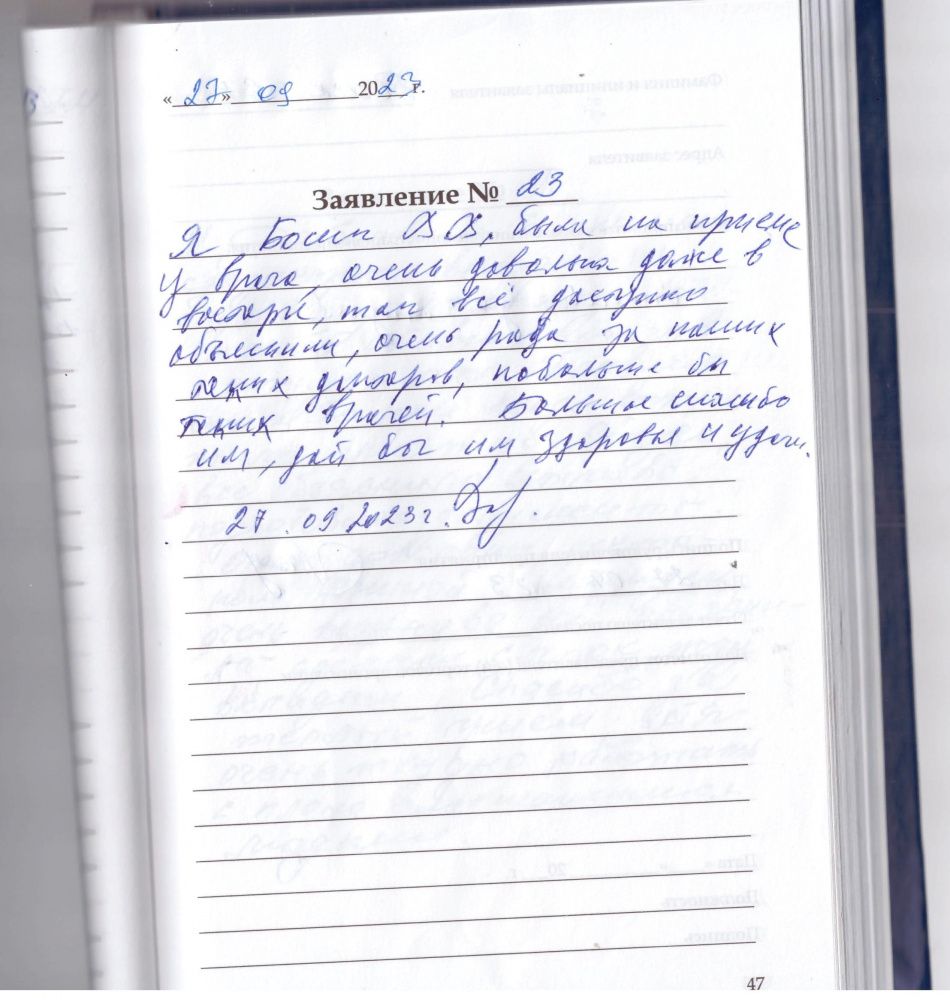 « 27 » 09 2023 г.
Заявление № 23
Я была на приеме
у врача, очень довольна даже в
восторге, так всё доступно
объяснили, очень рада за наших
таких докторов, побольше бы
таких врачей. Большое спасибо
им, дай бг им здоровья и удачи.
27.09.2023 г.
47